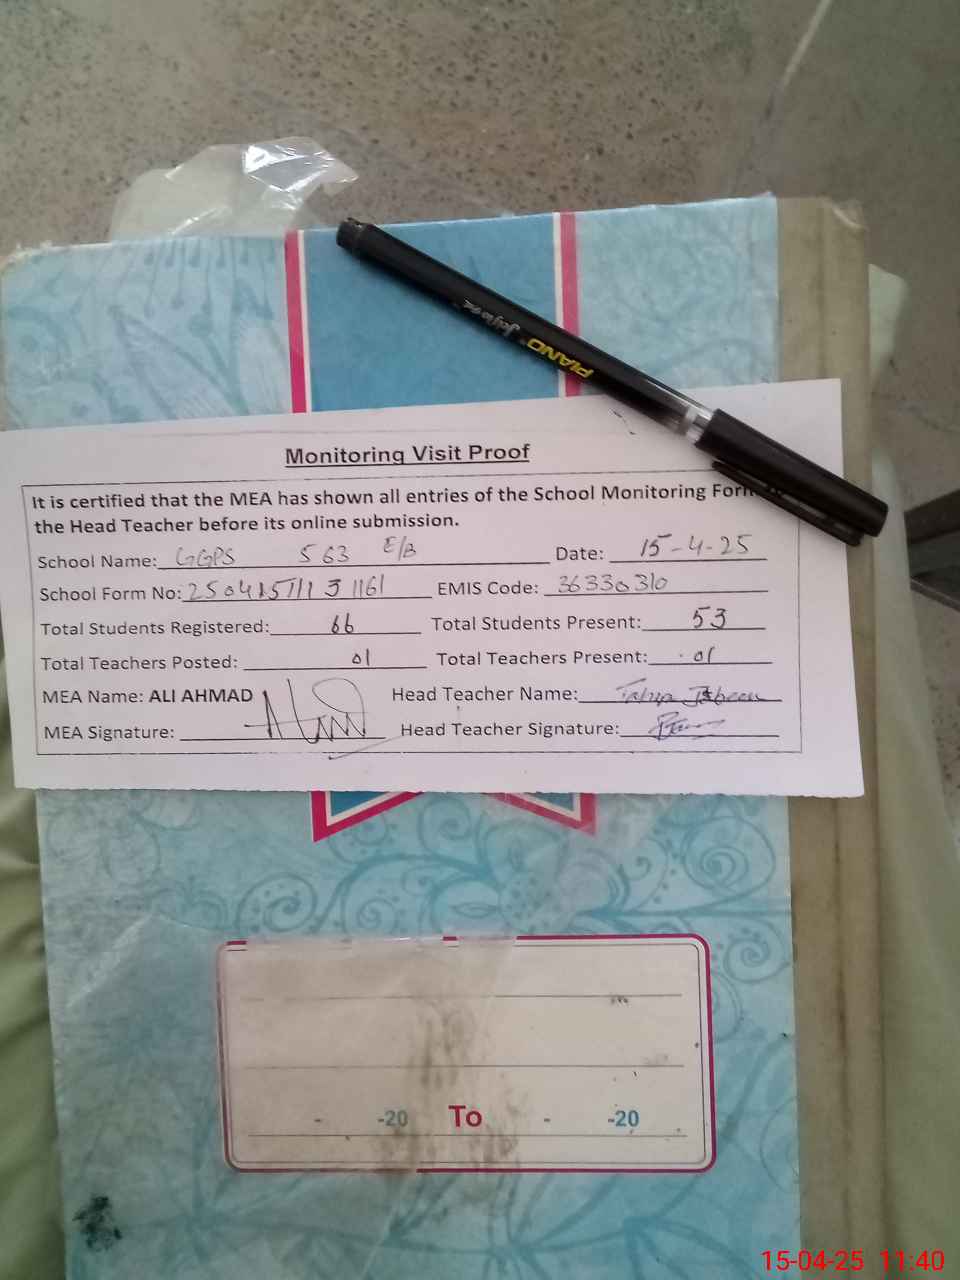 PIANO
Monitoring Visit Proof
It is certified that the MEA has shown all entries of the School Monitoring Form
the Head Teacher before its online submission.
School Name: GGPS 563 E/B Date: 15-4-25
School Form No: EMIS Code: 36330310
Total Students Registered: 66 Total Students Present: 53
Total Teachers Posted: 01 Total Teachers Present: 01
MEA Name: ALI AHMAD Head Teacher Name:
MEA Signature: Head Teacher Signature:
- -20 To - -20
15-04-25 11:40